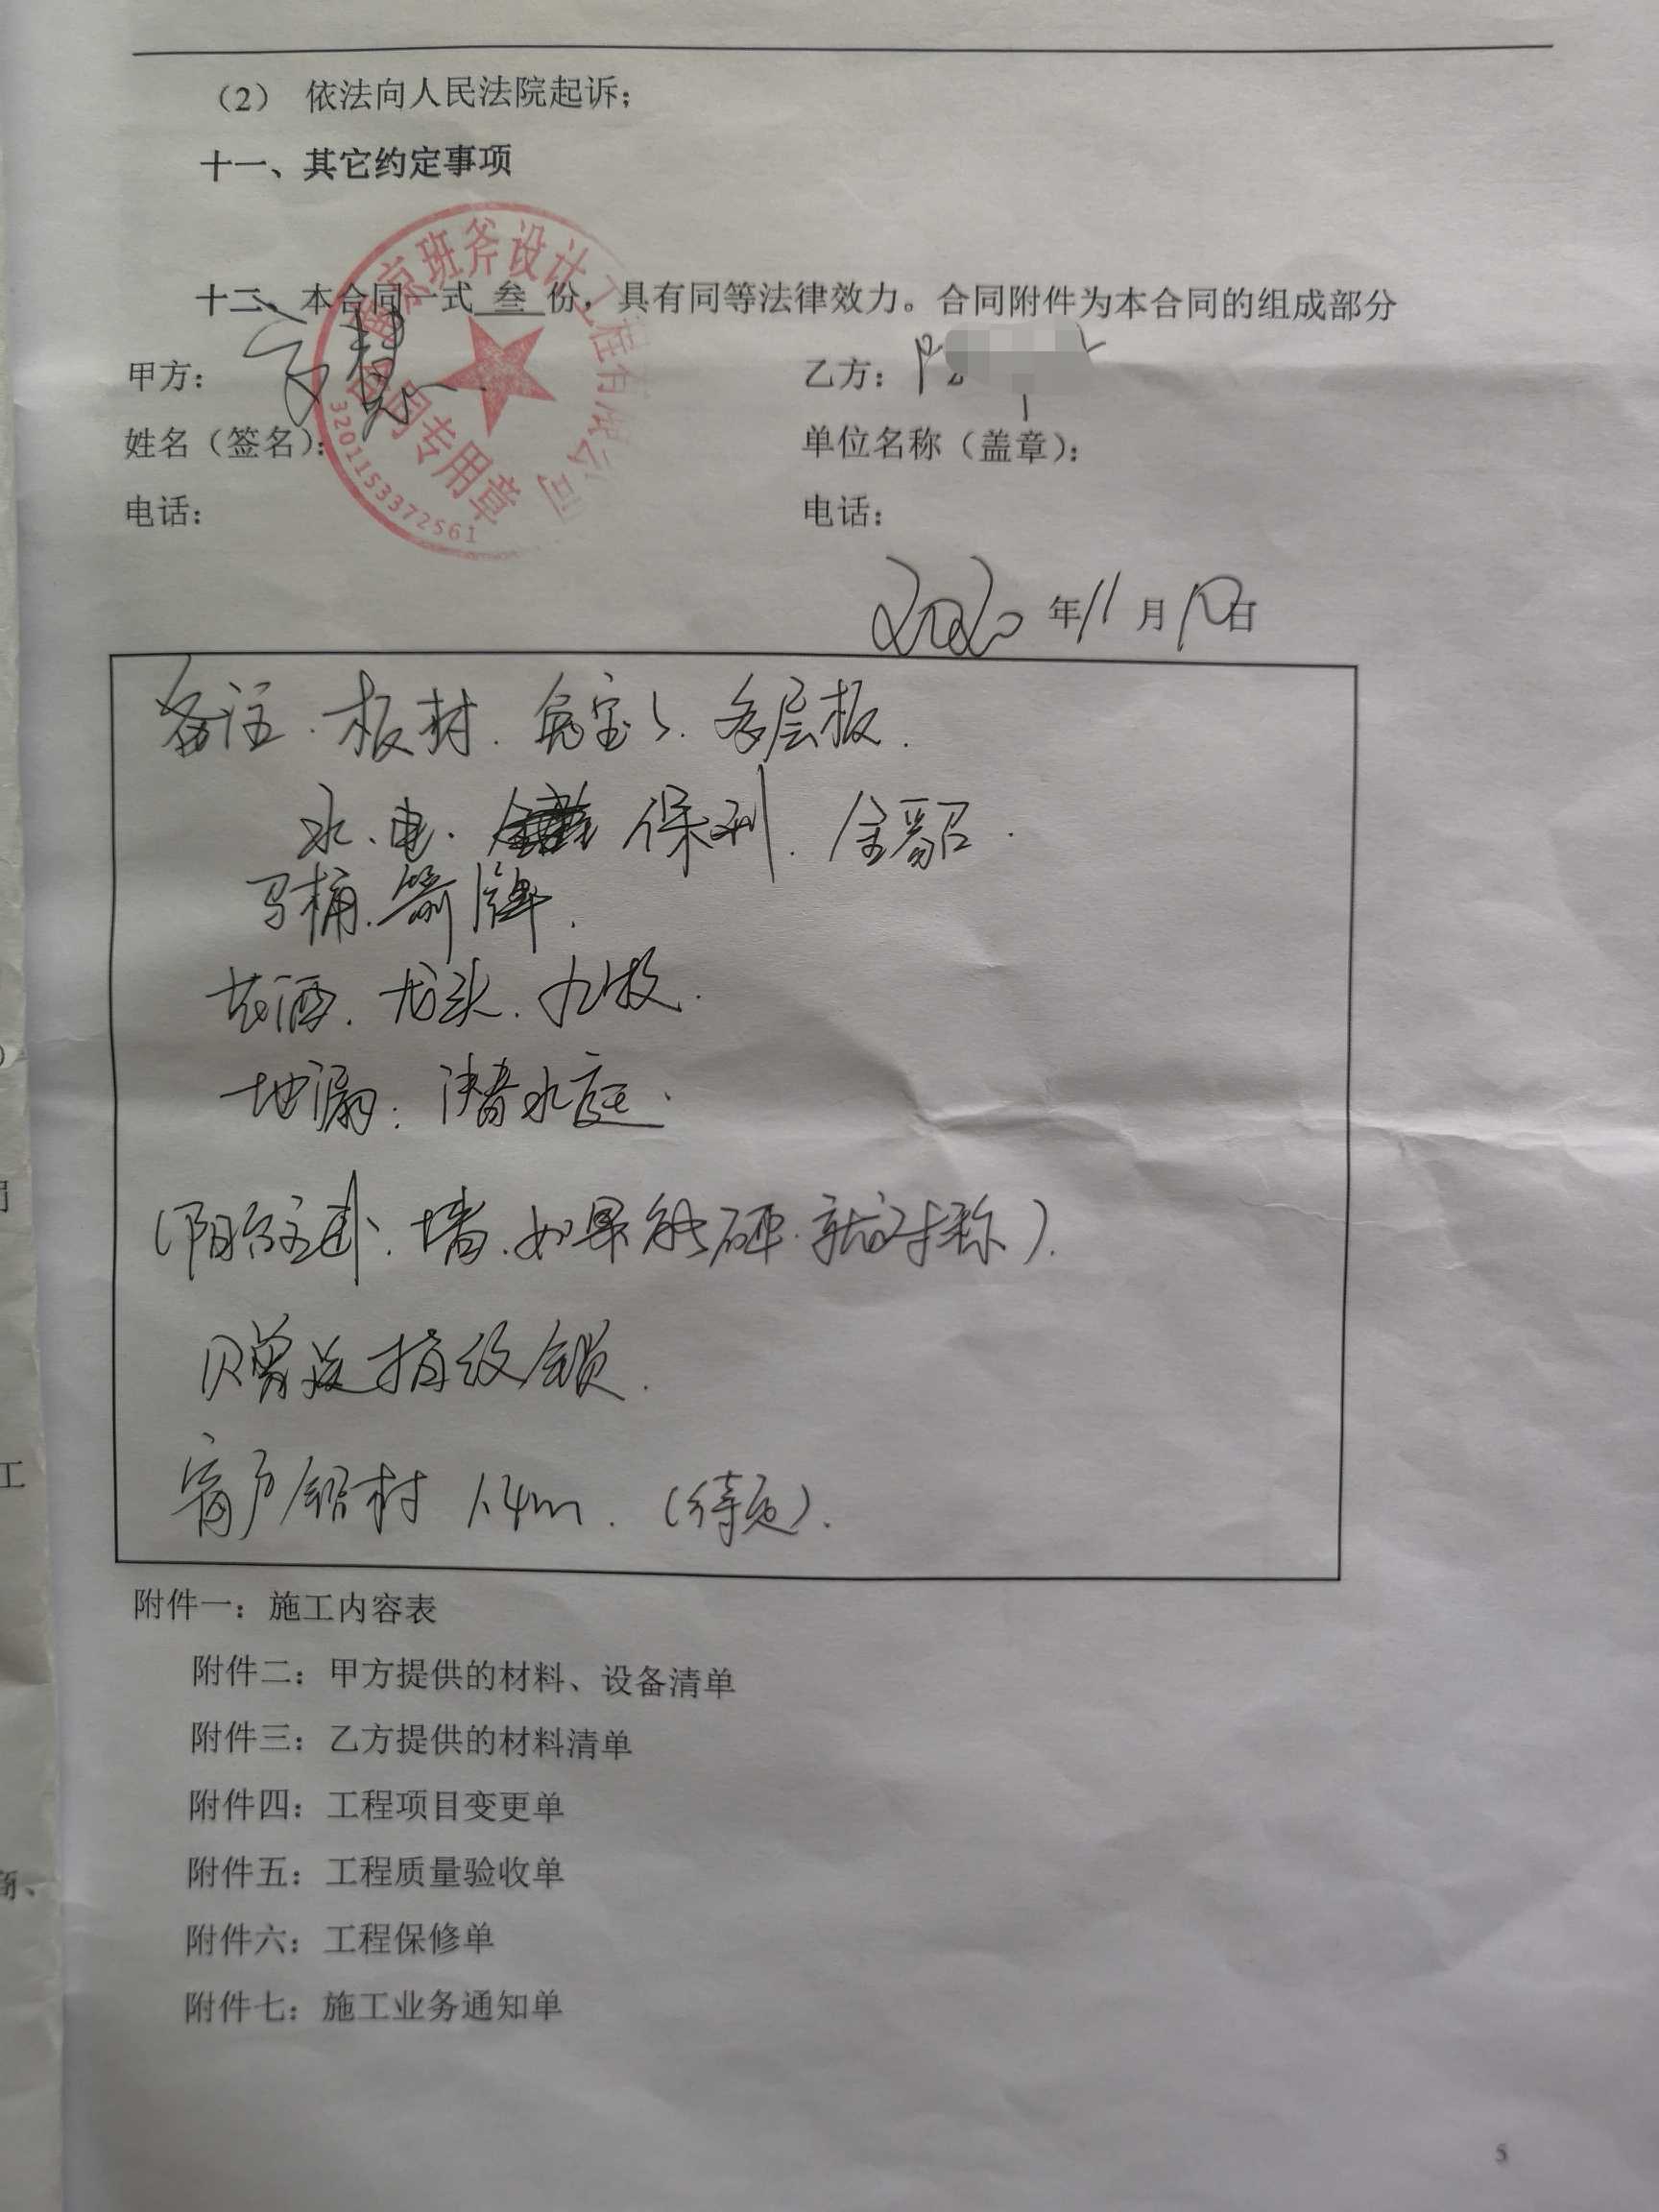 （2） 依法向人民法院起诉；
十一、其它约定事项
十二、本合同一式 叁 份，具有同等法律效力。合同附件为本合同的组成部分
南京班斧设计工程有限公司
合同专用章
3201153372561
甲方：
乙方：
姓名（签名）：
单位名称（盖章）：
电话：
电话：
2020 年 11 月 10 日
备注.板材.兔宝宝.多层板.
水.电. 保利.金
马桶.箭牌.
花洒.龙头.九牧.
地漏.潜水艇.
(阳台主卧.墙.如果能砸.就对称).
赠送指纹锁.
窗户铝材 1.4m.(待定).
附件一：施工内容表
附件二：甲方提供的材料、设备清单
附件三：乙方提供的材料清单
附件四：工程项目变更单
附件五：工程质量验收单
附件六：工程保修单
附件七：施工业务通知单
工
商、
5